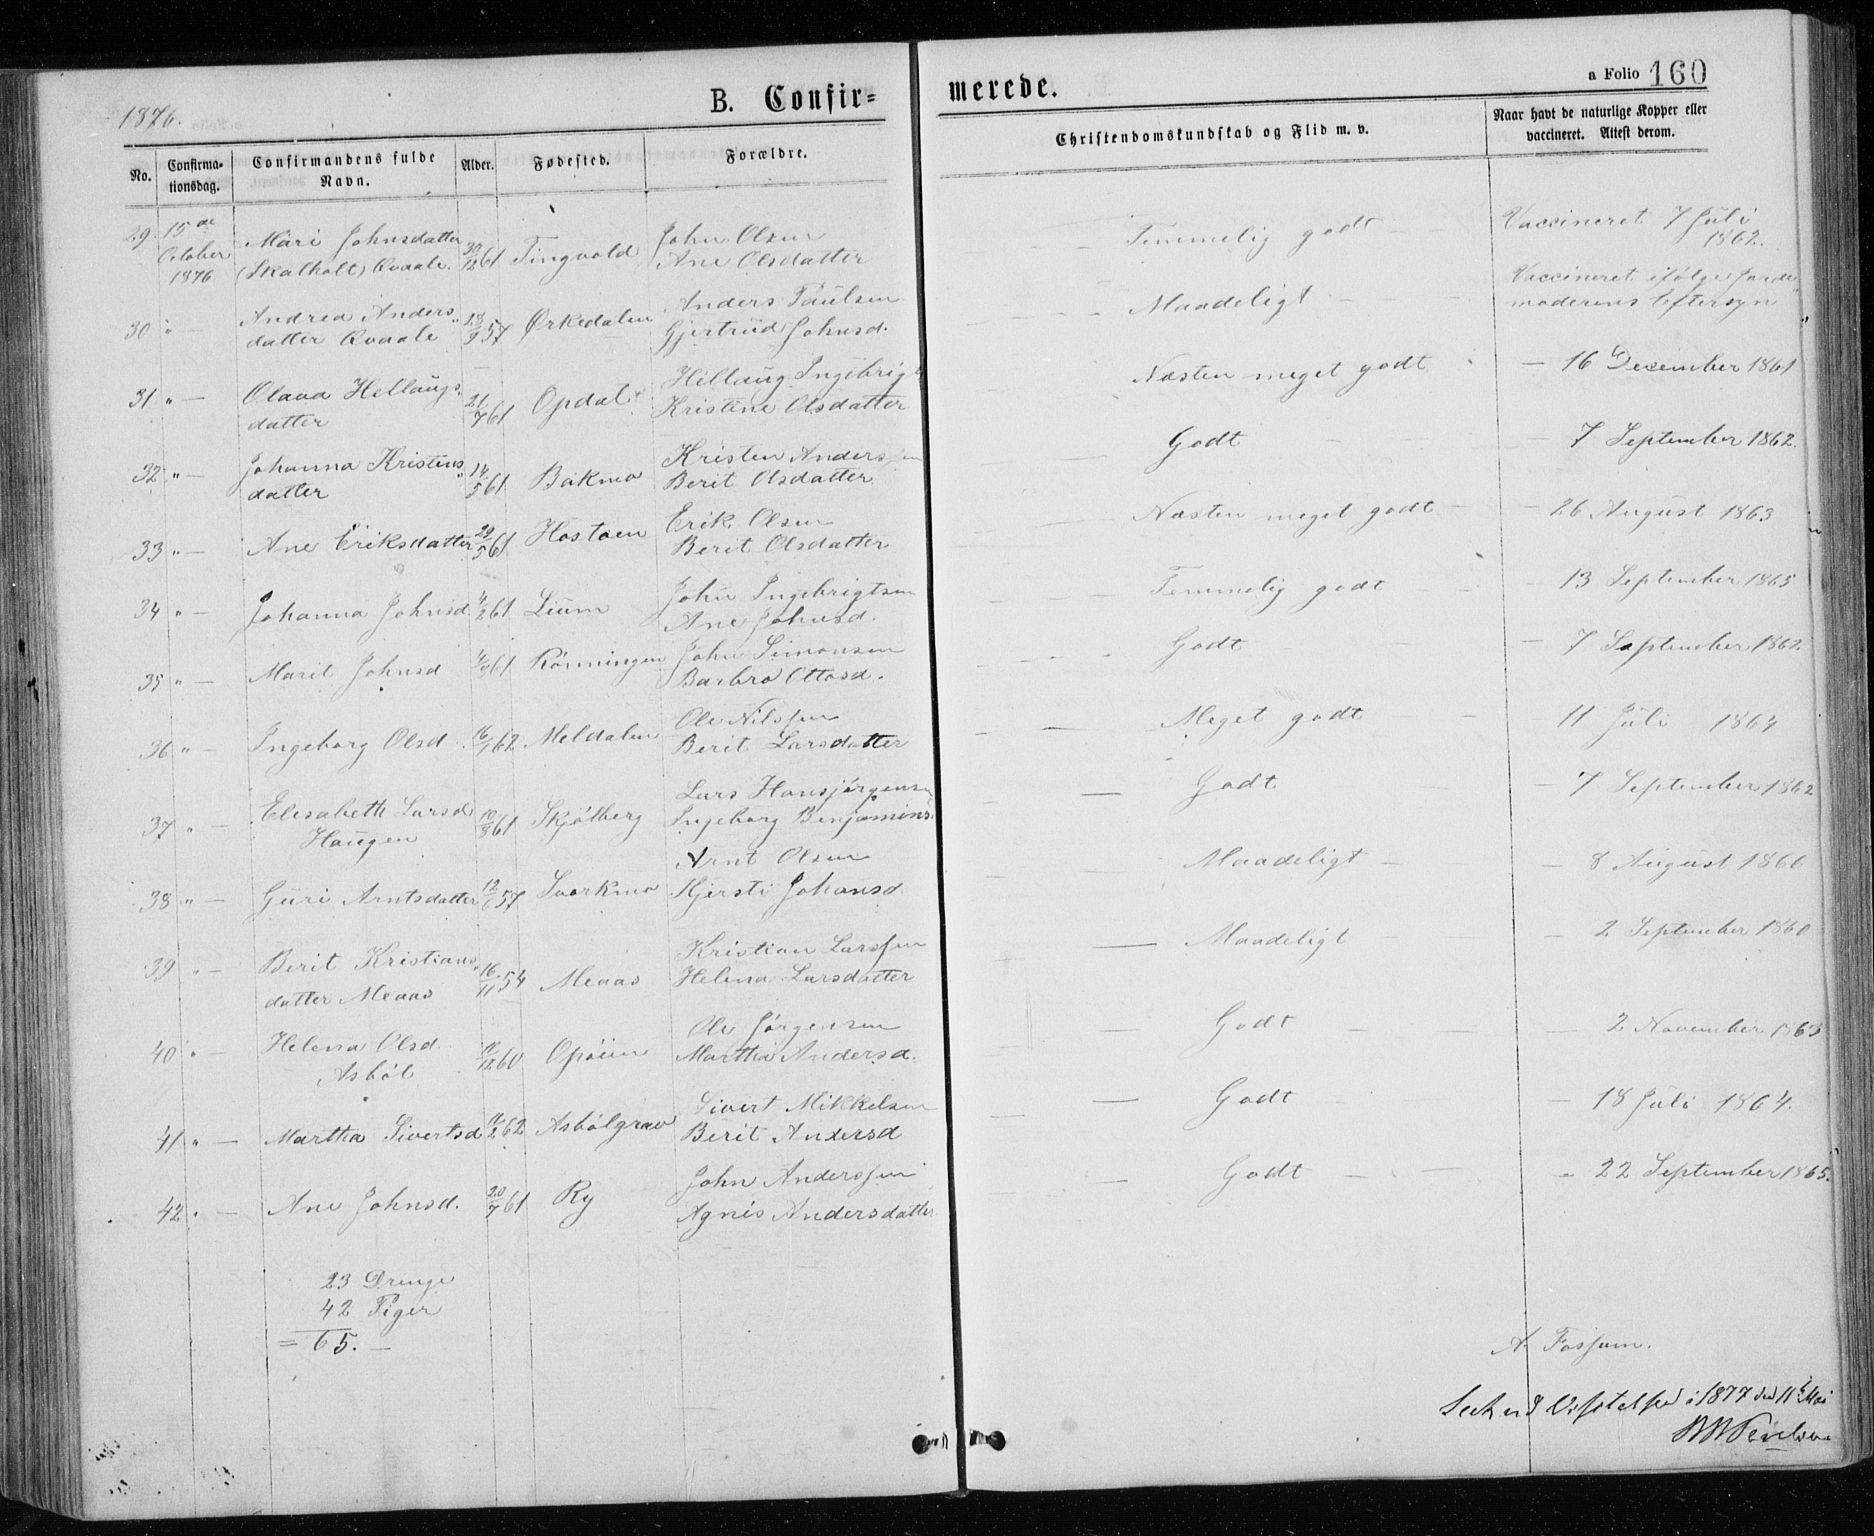 1876.
B. Confir=
merede.
a Folio 160
No.
Confirma-
tionsdag.
Confirmandens fulde
Navn.
Alder.
Fødested.
Forældre.
Christendomskundskab og Flid m. v.
Naar havt de naturlige Kopper eller
vaccineret. Attest derom.
29 15de October 1876 Mari Johnsdatter (Skalholt) Qvaale. 30/12 61 Tingvold John Olsen Ane Olsdatter Temmelig godt Vaccineret 7 Juli 1862.
30 " Andrea Andersdatter Qvaale 28/9 57 Ørkedalen Anders Paulsen Gjertrud Johnsd. Maadeligt Vaccineret ifølge Jordemoderens Eftersyn
31 " Olava Hellaugsdatter 21/7 61 Opdal Hellaug Ingebrigts Kristine Olsdatter Næsten meget godt 16 December 1861
32 " Johanna Kristensdatter 14/5 61 Bakmo Kristen Anderssen Berit Olsdatter Godt 7 September 1862.
33 " Ane Eriksdatter 29/5 61 Hostoen Erik Olsen Berit Olsdatter Næsten meget godt 26 August 1863
34 " Johanna Johnsd. 4/2 61 Lium John Ingebrigtsen Ane Johnsd. Temmelig godt 13 September 1865
35 " Marit Johnsd 61 Rönningen John Simonsen Barbro Ottosd. Godt 7 September 1862
36 " Ingeborg Olsd. 16/1 62 Meldalen Ole Nilssen Berit Larsdatter Meget godt 11 Juli 1864
37 " Elisabeth Larsd Haugen 10/8 61 Skjölberg Lars Hansjørgensen Ingeborg Benjamins. Godt 7 September 1862
38 " Guri Arntsdatter 12/6 57 Svorkmo Arnt Olsen Kjersti Johansd. Maadeligt 8 August 1860
39 " Berit Kristiansdatter Meaas 16/11 54 Meaas Kristian Larssen Helena Larsdatter Maadeligt 2 September 1860
40 " Helena Olsd. Asböl 11/12 60 Opöien Ole Jörgensen Martha Andersd. Godt 2 November 1863
41 " Martha Sivertsd 11/2 62 Asbölgrav Sivert Mikkelsen Berit Andersd Godt 18 Juli 1864.
42 " Ane Johnsd. 20/7 61 Ry John Anderssen Agnis Andersdatter Godt 22 September 1865.
23 Drenge
42 Piger
= 65.
A. Fossum.
Seet ved Visitatsen i 1877 den 11te Mai